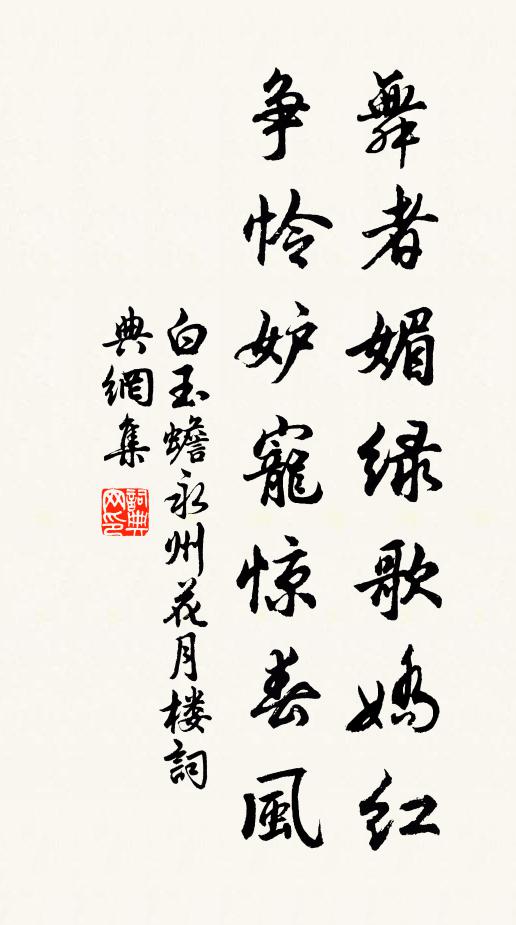 舞者媚绿歌嬌红
争怜妒寵惊春風
白玉蟾永州花月楼詞
典網集
詞典网印